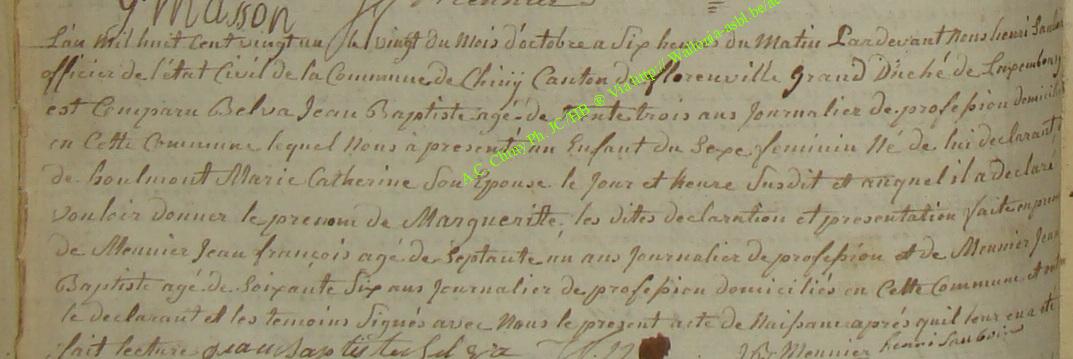 G Masson
L'an mil huit Cent vingt un le vingt du Mois d'octobre a Six heures du Matin Pardevant Nous henri
officier de l'état Civil de la Commune de Chiny Canton de florenville grand Duché de Luxembourg
est Comparu Belva Jean Baptiste agé de trente trois ans Journalier de profession domicilié
en Cette Commune lequel Nous à presenté un Enfant du Sexe feminin Né de lui declarant
de houlmont Marie Catherine Son Epouse le Jour et heure Susdit et auquel il a declaré
vouloir donner le prenom de Margueritte, les dites declaration et presentation faite en
de Meunier Jean françois agé de Septante un ans Journalier de profession et de Meunier Jean
Baptiste agé de Soixante Six ans Journalier de profession domiciliés en Cette Commune et
le declarant et les temoins Signés avec Nous le present acte de Naissance aprés quil leur en a été
fait lecture Jean Baptiste Belva JB Meunier henri
A.C. Chiny Ph. JC HB ® Via http://Wallonia-asbl.be/ac